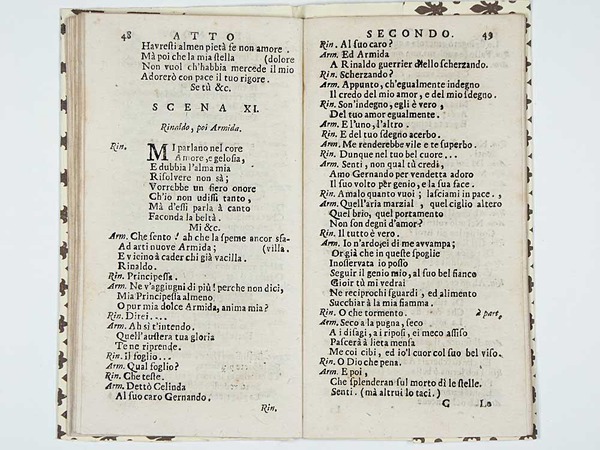 48 ATTO
Havresti almen pietà se non amore.
Mà poi che la mia stella (dolore
Non vuol ch'habbia mercede il mio
Adorerò con pace il tuo rigore.
Se tù &c.
SCENA XI.
Rinaldo, poi Armida.
Rin. MI parlano nel core
Amore, e gelosia,
E dubbia l'alma mia
Risolvere non sà;
Vorrebbe un fiero onore
Ch'io non udissi tanto,
Mà d'essi parla à canto
Faconda la beltà.
Mi &c.
Arm. Che sento! ah che la speme ancor sfa-
Ad arti nuove Armida; (villa.
E vicino à cader chi già vacilla.
Rinaldo.
Rin. Principessa.
Arm. Ne v'aggiugni di più! perche non dici,
Mia Principessa almeno
O pur mia dolce Armida, anima mia?
Rin. Direi....
Arm. Ah sì t'intendo.
Quell'austera tua gloria
Te ne riprende.
Rin. il foglio...
Arm. Qual foglio?
Rin. Che teste.
Arm. Dettò Celinda
Al suo caro Gernando.
Rin.
SECONDO. 49
Rin. Al suo caro?
Arm. Ed Armida
A Rinaldo guerrier dello scherzando.
Rin. Scherzando?
Arm. Appunto, ch'egualmente indegno
Il credo del mio amor, e del mio sdegno.
Rin. Son'indegno, egli è vero,
Del tuo amor egualmente.
Arm. E l'uno, l'altro.
Rin. E del tuo sdegno acerbo.
Arm. Me renderebbe vile e te superbo.
Rin. Dunque nel tuo bel cuore...
Arm. Senti, non qual tù credi,
Amo Gernando per vendetta adoro
Il suo volto per genio, e la sua face.
Rin. Amalo quanto vuoi; lasciami in pace.
Arm. Quell'aria marzial, quel ciglio altero
Quel brio, quel portamento
Non son degni d'amor?
Rin. Il tutto è vero.
Arm. Io n'ardo, ei di me avvampa;
Or già che in queste spoglie
Inosservata io posso
Seguir il genio mio, al suo bel fianco
Gioir tù mi vedrai
Ne reciprochi sguardi, ed alimento
Succhiar à la mia fiamma.
Rin. O che tormento. à part.
Arm. Seco a la pugna, seco
A i disagi, a i riposi, ei meco assiso
Pascerà à lieta mensa
Me coi cibi, ed io'l cuor col suo bel viso.
Rin. O Dio che pena.
Arm. E poi,
Che splenderan sul morto dì le stelle.
Senti. (mà altrui lo taci.)
C Lo